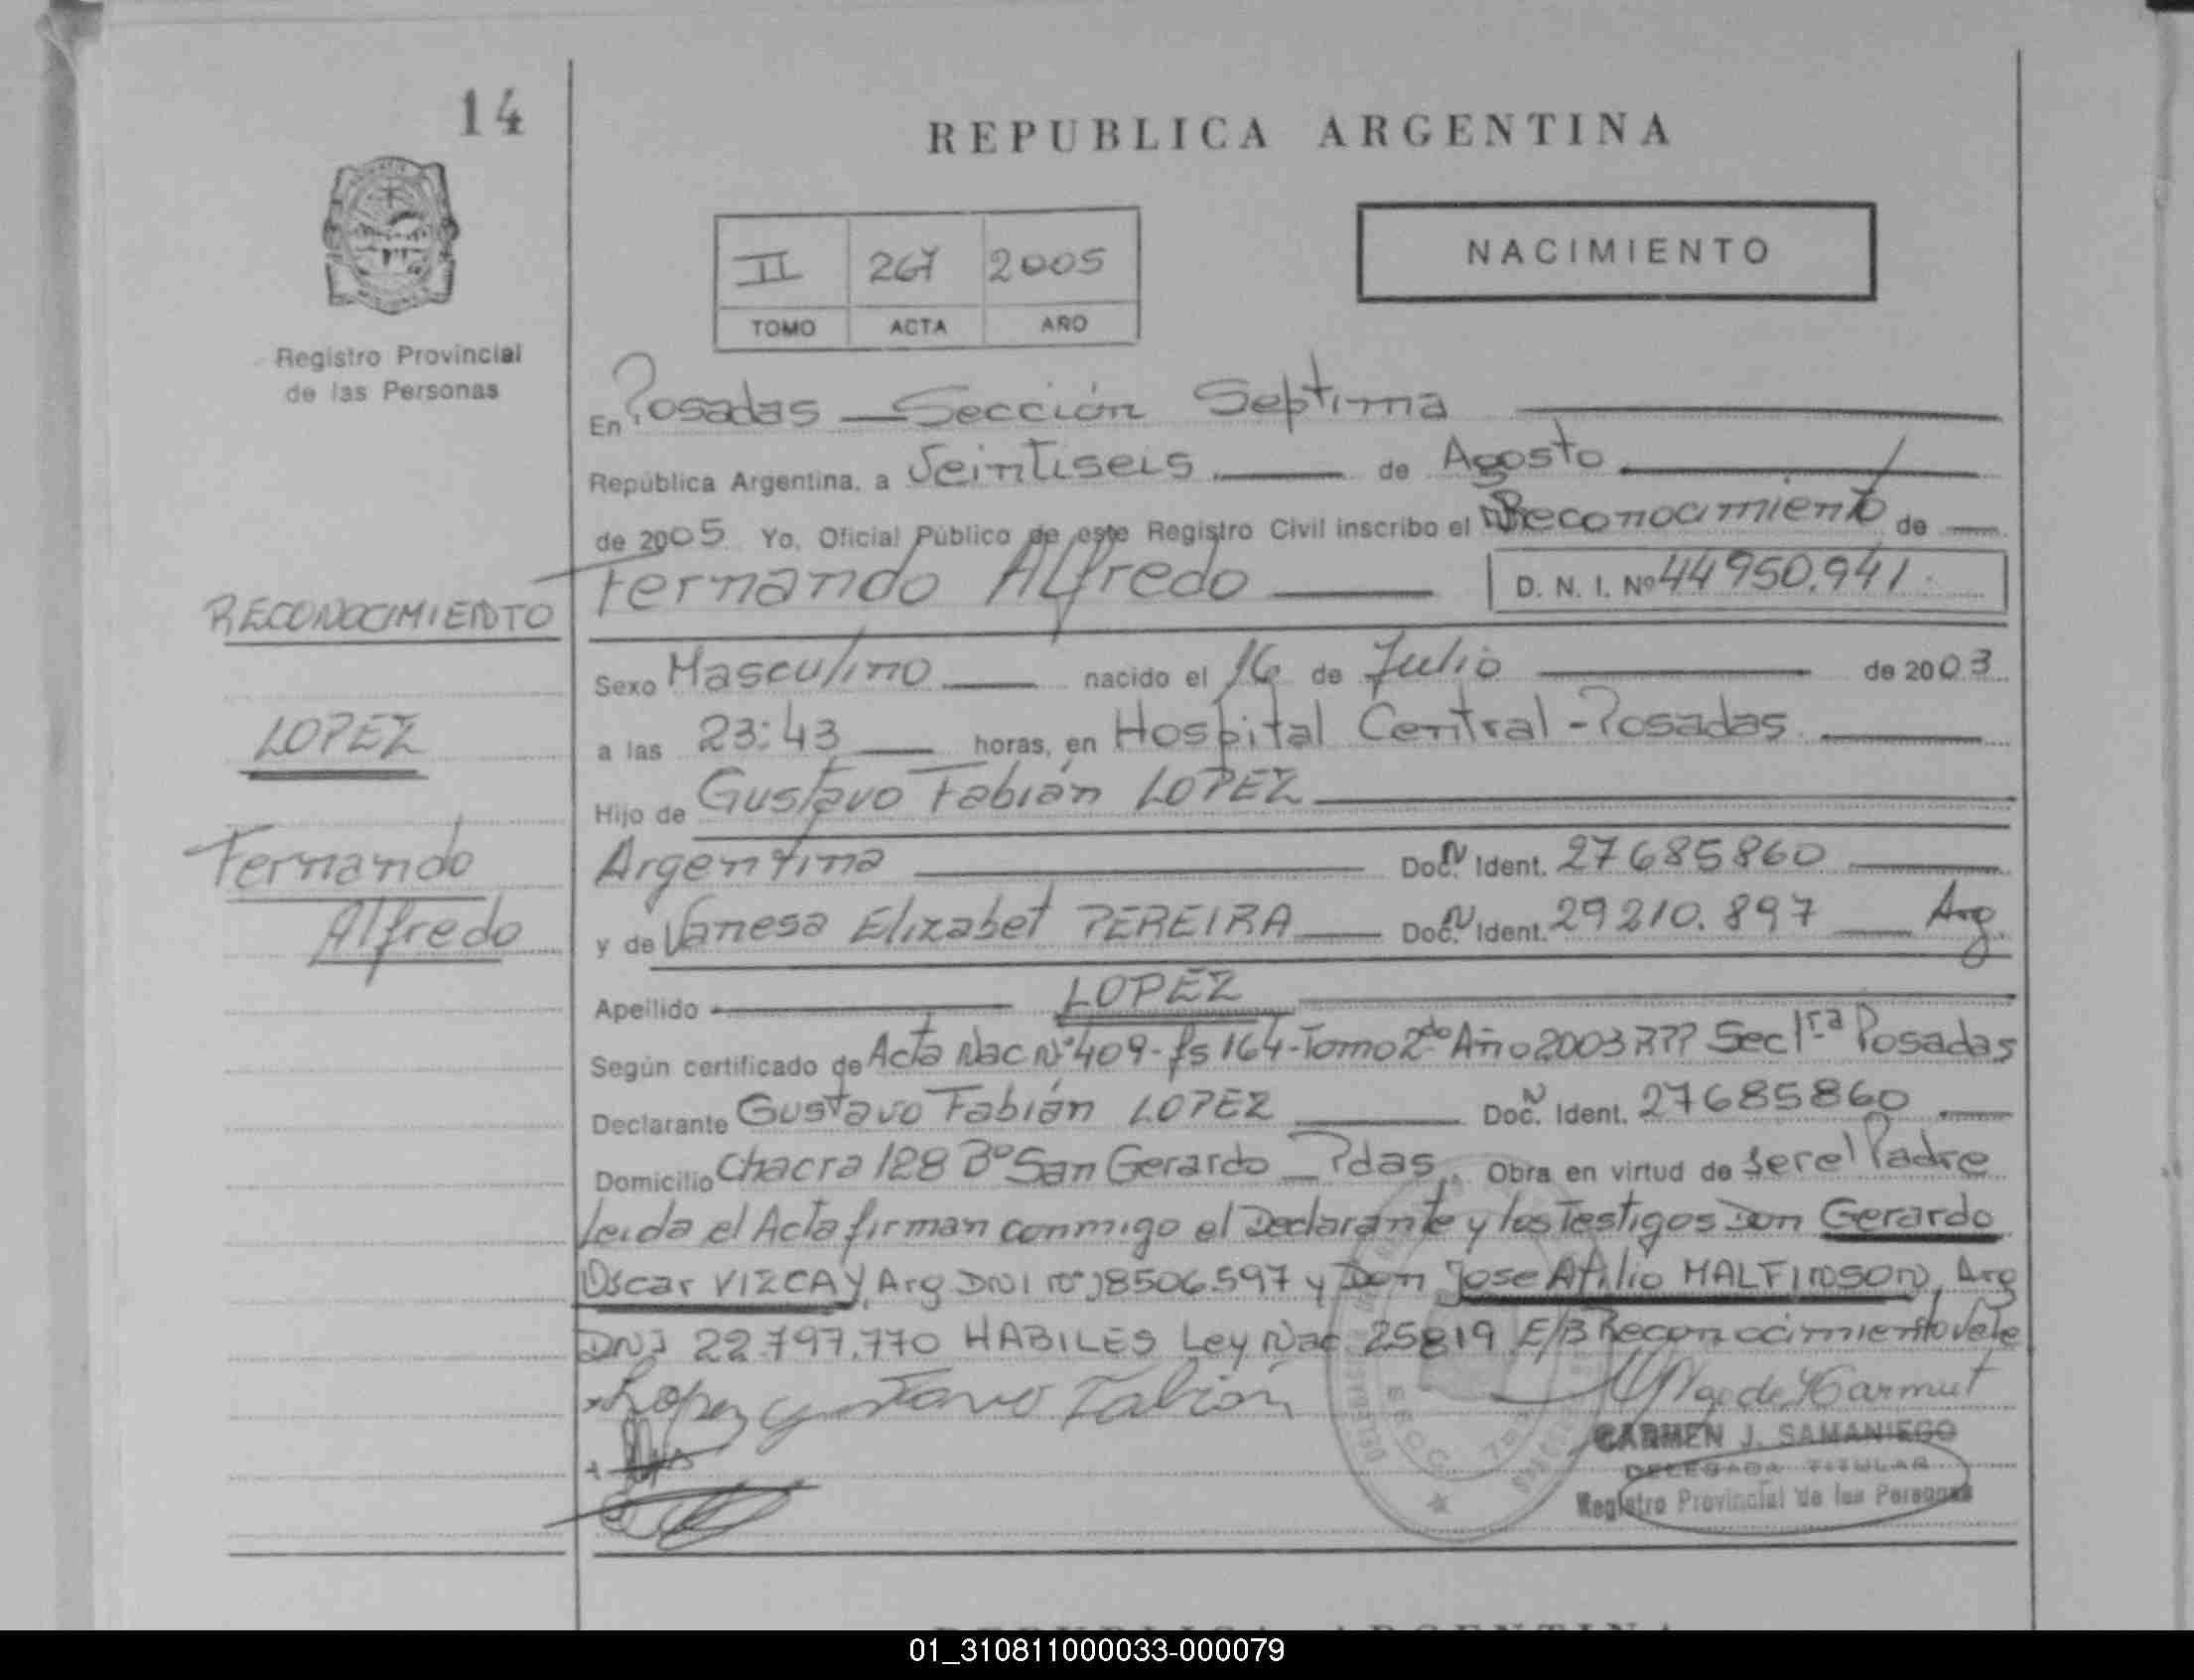 14
REPUBLICA ARGENTINA
II 267 2005
TOMO ACTA AÑO
NACIMIENTO
Registro Provincial
de las Personas
En Posadas — Sección Septima
República Argentina, a Veintiseis de Agosto
de 2005 Yo, Oficial Público de este Registro Civil inscribo el Reconocimiento de
Fernando Alfredo D. N. I. Nº 44950.941
RECONOCIMIENTO
Sexo Masculino nacido el 16 de Julio de 2003
LOPEZ
a las 23:43 horas, en Hospital Central - Posadas
Hijo de Gustavo Fabián LOPEZ
Fernando
Argentina Doc. Ident. 27685860
Alfredo
y de Vanesa Elizabet PEREIRA Doc. Ident. 29210.897 Arg.
Apellido LOPEZ
Según certificado de Acta Nac Nº 409 - fs 164 - Tomo 2do Año 2003 Sec 1ra Posadas
Declarante Gustavo Fabián LOPEZ Doc. Ident. 27685860
Domicilio Chacra 128 Bº San Gerardo _ Pdas. Obra en virtud de ser el Padre
Leida el Acta firman conmigo el Declarante y los Testigos Don Gerardo
Oscar VIZCAY, Arg DNI nº 18506.597 y Don Jose Atilio MALFINSON, Arg
DNI 22.797.770 HABILES Ley Nac 25819 E/B Reconocimiento Vale
Lopez Gustavo Fabián
CARMEN J. SAMANIEGO
DELEGADA TITULAR
Registro Provincial de las Personas
SECC. 7ma
REPUBLICA ARGENTINA
01_310811000033-000079